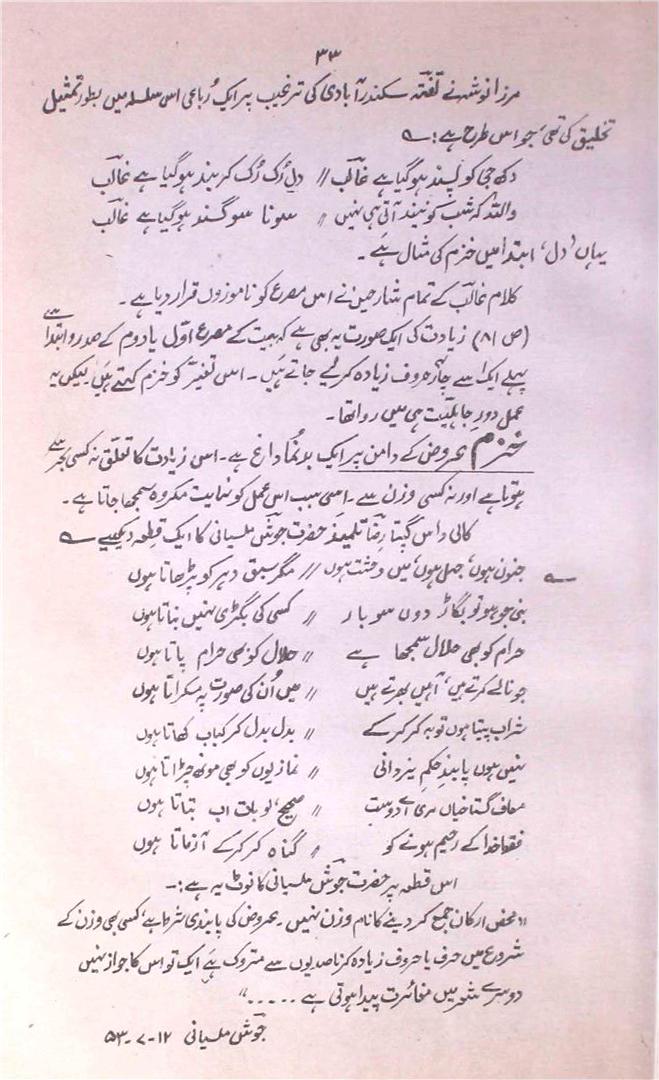 ۳۳
مرزا نوشہ نے تفتہ سکندر آبادی کی ترغیب پر ایک رُباعی اس سلسلہ میں بطور تمثیل
تخلیق کی تھی، جو اس طرح ہے:؎
دکھ جی کو پسند ہو گیا ہے غالب // دل رُک رُک کر بند ہو گیا ہے غالب
واللہ کہ شب کو نیند آتی ہی نہیں // سونا سوگند ہو گیا ہے غالب
یہاں ’دل‘ ابتدا میں خزم کی مثال ہے۔
کلام غالب کے تمام شارحین نے اس مصرع کو ناموزوں قرار دیا ہے۔
(ص ۸۱) زیادت کی ایک صورت یہ بھی ہے کہ بیت کے مصرع اوّل یا دوم کے صدر و ابتدا سے
پہلے ایک سے چار حروف زیادہ کر لیے جاتے ہیں۔ اس تغیّر کو خزم کہتے ہیں، لیکن یہ
عمل دورِ جاہلیّت ہی میں روا تھا۔
خزم عروض کے دامن پر ایک بدنُما داغ ہے۔ اس زیادت کا تعلّق نہ کسی بحر سے
ہوتا ہے اور نہ کسی وزن سے۔ اسی سبب اس عمل کو نہایت مکروہ سمجھا جاتا ہے۔
کالی داس گپتا رضا تلمیذ حضرت جوش ملسیانی کا ایک قطعہ دیکھیے ؎
؎ جنون ہوں، جہل ہوں، میں وحشت ہوں // مگر سبق دہر کو پڑھاتا ہوں
بنی جو ہو تو بگاڑ دوں سو بار // کسی کی بگڑی نہیں بناتا ہوں
حرام کو بھی حلال سمجھا ہے // حلال کو بھی حرام پاتا ہوں
جو نالے کرتے ہیں، آہیں بھرتے ہیں // میں اُن کی صورت پہ مسکراتا ہوں
شراب پیتا ہوں توبہ کر کر کے // بدل بدل کر کباب کھاتا ہوں
نہیں ہوں پابند حکمِ یزدانی // نمازیوں کو بھی مونھ چڑاتا ہوں
معاف گستاخیاں مری اے دوست // صحیح، لو بات اب بتاتا ہوں
فقط خدا کے رحیم ہونے کو // گناہ کر کر کے آزماتا ہوں
اس قطعہ پر حضرت جوش ملسیانی کا نوٹ یہ ہے:۔
”محض ارکان جمع کر دینے کا نام وزن نہیں۔ عروض کی پابندی شرط ہے، کسی بھی وزن کے
شروع میں حرف یا حروف زیادہ کرنا صدیوں سے متروک ہے، ایک تو اس کا جواز نہیں
دوسرے شعر میں مغائرت پیدا ہوتی ہے ۔۔۔۔۔“
جوش ملسیانی ۱۲-۷-۵۳